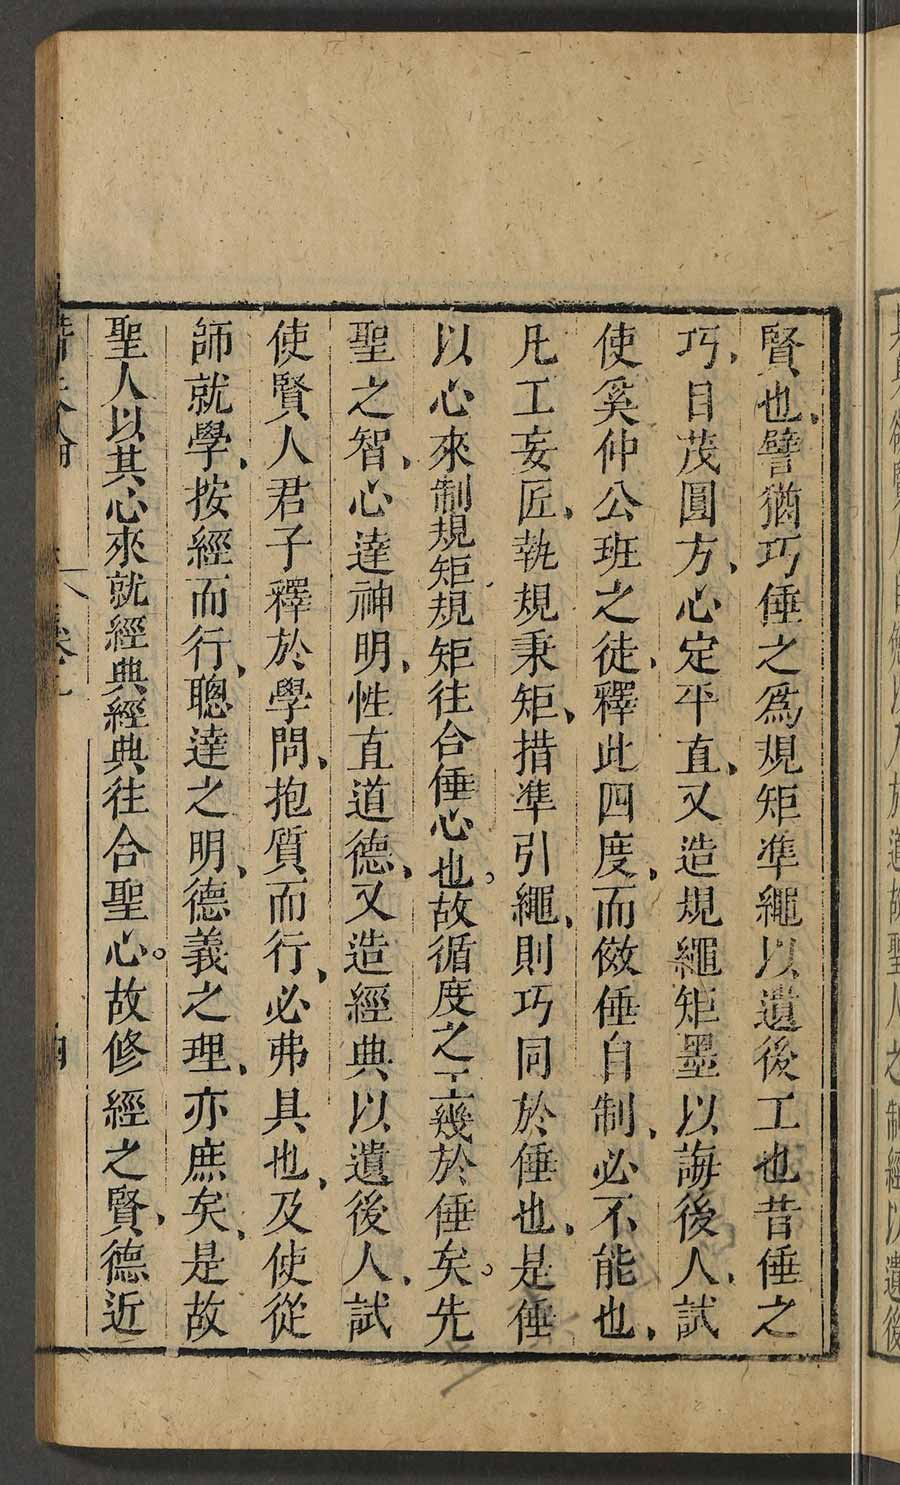 賢也、譬猶巧倕之爲規矩凖繩以遺後工也昔倕之
巧、目茂圓方、心定平直、又造規繩矩墨以誨後人、試
使奚仲公班之徒、釋此四度、而傚倕自制、必不能也、
凡工妄匠、執規秉矩、措凖引繩、則巧同於倕也、是倕
以心來制規矩規矩往合倕心也。故循度之工幾於倕矣。先
聖之智、心達神明、性直道德、又造經典以遺後人、試
使賢人君子釋於學問、抱質而行、必弗具也、及使從
師就學、按經而行、聰達之明、德義之理、亦庶矣、是故
聖人以其心來就經典經典往合聖心。故修經之賢、德近